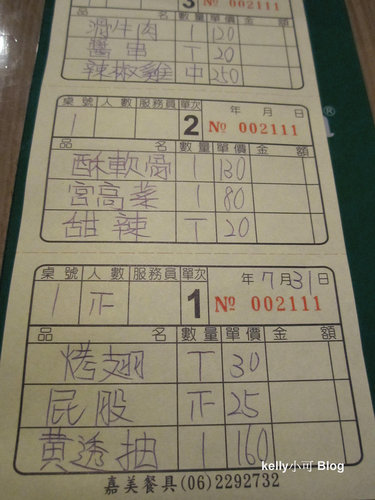 3 № 002111
滑牛肉 1 120
醬串 T 20
辣椒雞 中 250
桌號 人數 服務員 單次 年 月 日
1 2 № 002111
品名 數量 單價 金額
酥軟骨 1 130
宮高業 1 80
甜辣 T 20
桌號 人數 服務員 單次 年7月31日
1 正 1 № 002111
品名 數量 單價 金額
烤翅 T 30
屁股 正 25
黃透抽 1 160
kelly小可 Blog
嘉美餐具(06)2292732